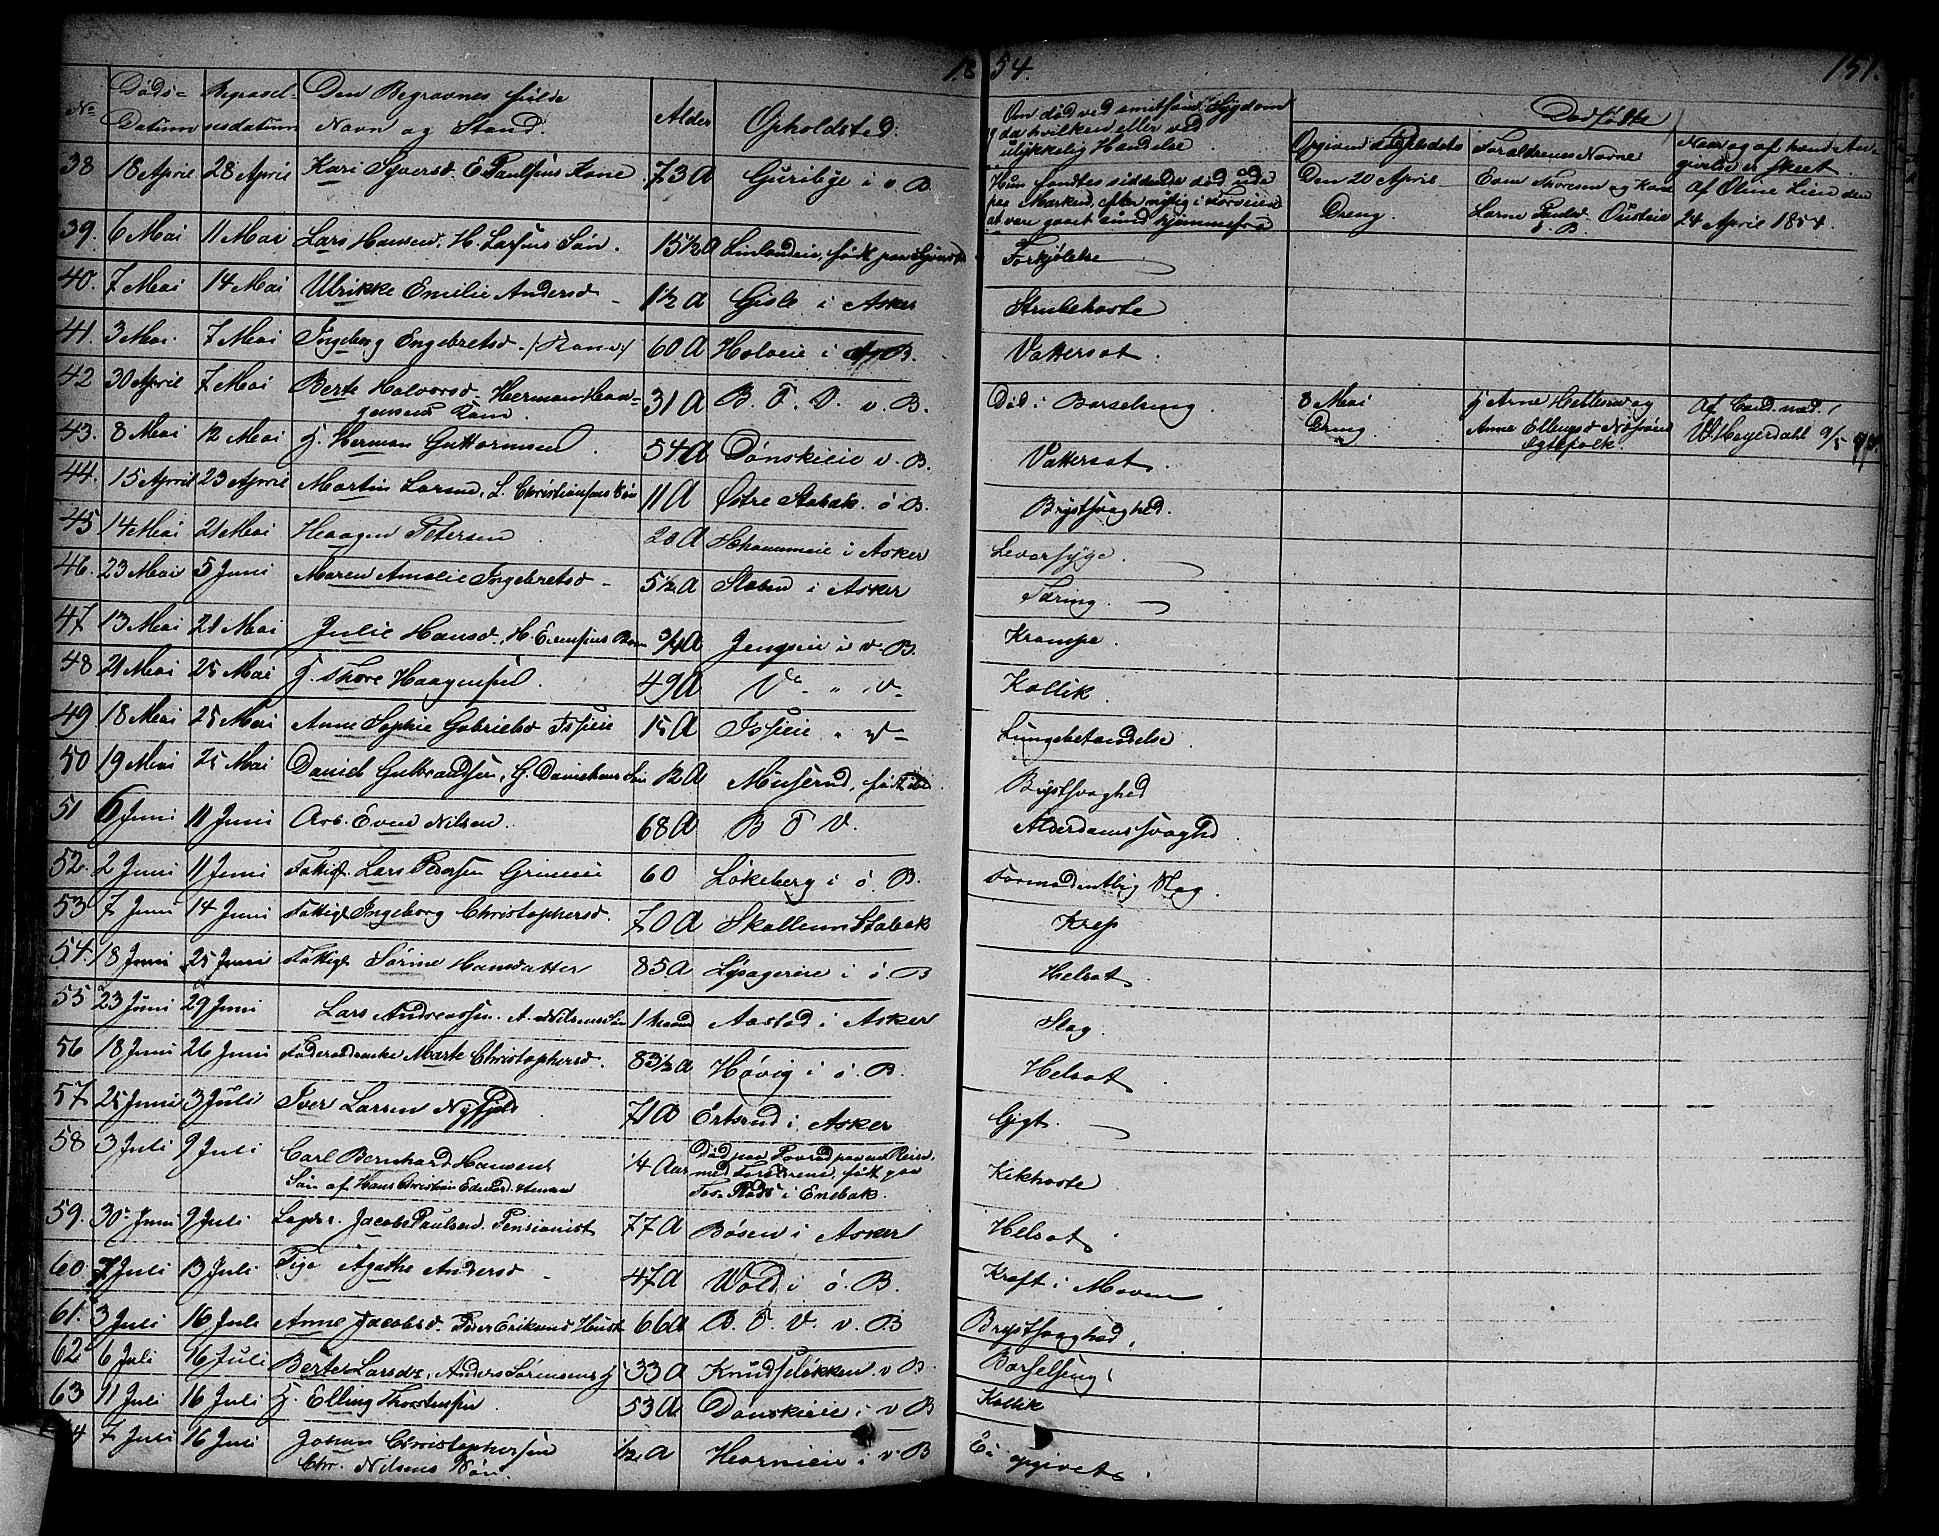 1854. 151.
No Døds- Datum Begravel- sesdatum Den Begravnes fulde Navn og Stand. Alder Opholdsted. Om død ved smitsom Sygdom da hvilken eller ved ulykkelig Hændelse. Dødfødte
Opgiven Fødeledets Forældrenes Navne Naar og af hvem An- givelse er skeet.
38 18 April 28 April Kari Syversd. E. Paulsens Kone 73 A Guribye i v. B. Hun fandtes siddende død ude paa Marken, efter nylig i Forveien at være gaaet sund hjemmefra Den 20 April Dreng. Even Thoresen og Kone Larine Paulsd. Ousteie V. B. Af Oline Lien den 24 April 1854.
39. 6 Mai 11 Mai Lars Hansen. H. Larsens Søn. 15½ A Forkjølelse
40. 7 Mai 14 Mai Ulrikke Emilie Andersd 1½ A Gisle i Asker Strubehoste
41. 3 Mai. 7 Mai Ingeborg Engebretsd. /:Kone:/ 60 A Holveie i B. Vattersot.
42 30 April 7 Mai Berte Halvorsd. Herman Haa- gensens Kone. 31 A B. F. V. v. B. Død i Barselseng. 8 Mai Dreng G. Arne og Anne Ellingsd Egtefolk Af Cand. med. W. Heyerdahl 9/5 54.
43. 8 Mai 12 Mai G. Herman Guttormsen 54 A Dønskieie v. B. Vattersot.
44. 15 April 23 April Martin Larsen, L. Christiansens Søn 11 A Østre Stabæk. ø B. Brystsvaghed.
45 14 Mai 21 Mai Haagen Petersen 20 A i Asker Leversyge.
46. 23 Mai 5 Juni Maren Amalie Ingebretsd 5½ A Staben i Asker Tæring.
47 13 Mai 21 Mai Julie Hansd., H. Evensens Barn 3/4 A Jengseie i v. B. Krampe.
48 21 Mai 25 Mai G. Thore Haagensen. 49 A Kollik.
49 18 Mai 25 Mai Anne Sophie Gabrielsd 15 A Lungebetændelse
50 19 Mai 25 Mai Daniel Gulbrandsen, G. Danielsens Søn 12 A Muserud, født ibid. Brystsvaghed
51 6 Juni 11 Juni Arb. Even Nilsen. 68 A B F V. Alderdomssvaghed.
52. 2 Juni 11 Juni Fattigl. Lars Pedersen 60 Løkeberg i ø. B. Formodentlig Slag.
53 7 Juni 14 Juni Fattigl Ingeborg Christophersd. 70 A Skallum Stabæk Kref
54. 18 Juni 25 Juni Fattigl Sørine Hansdatter 85 A Lysagereie i ø. B Helsot
55 23 Juni 29 Juni Lars Andreassen. A. Nilsens Søn 1 Maaned Aastad i Asker Slag.
56 18 Juni 26 Juni Føderaadsenke Marte Christophersd. 83½ A Høvig i ø. B. Helsot
57. 25 Juni 3 Juli Iver Larsen 71 A Ertsrud i Asker Gigt.
58 3 Juli 9 Juli Carl Bernhard Hansen Søn af Hans Christian 1/4 Aar Død paa paa en Reise, med Forældrene, født paa i Enebak. Kikhoste.
59. 30 Juni 9 Juli Jacob Paulsen. Pensionist 77 A Bøsen i Asker Helsot
60. 7 Juli 13 Juli Pige Agathe Andersd 47 A Wold i ø. B. Kræft i Maven
61. 3 Juli 16 Juli Anne Jacobsd. Peder Eriksens Hustr 66 A B. F. V. v. B Brystsvaghed,
62. 6 Juli 16 Juli Berte Larsdr, Anders Sørensens 33 A Knudsløkken v B. Barselseng,
63 11 Juli 16 Juli G. Elling Thorstensen 53 A Dønskieie i v B Kollik
64 7 Juli 16 Juli Johan Christophersen Chr. Nilsens Søn. 1/2 A Hornieie i v B Ei opgivet.